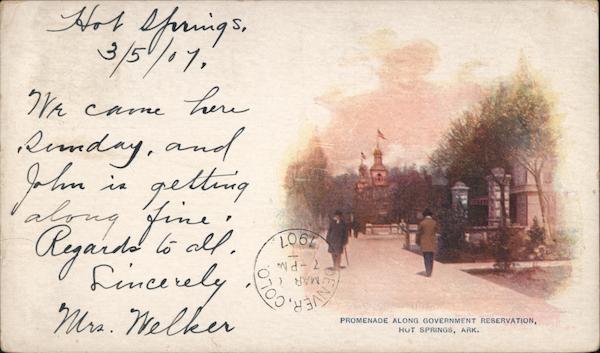 Hot Springs.
3/5/07.
We came here
Sunday, and
John is getting
along fine.
Regards to all.
Sincerely,
Mrs. Welker
DENVER, COLO.
MAR
7-PM
1907
PROMENADE ALONG GOVERNMENT RESERVATION,
HOT SPRINGS, ARK.